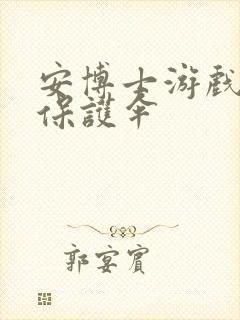 安博士游戏
保護伞
郭宴賓